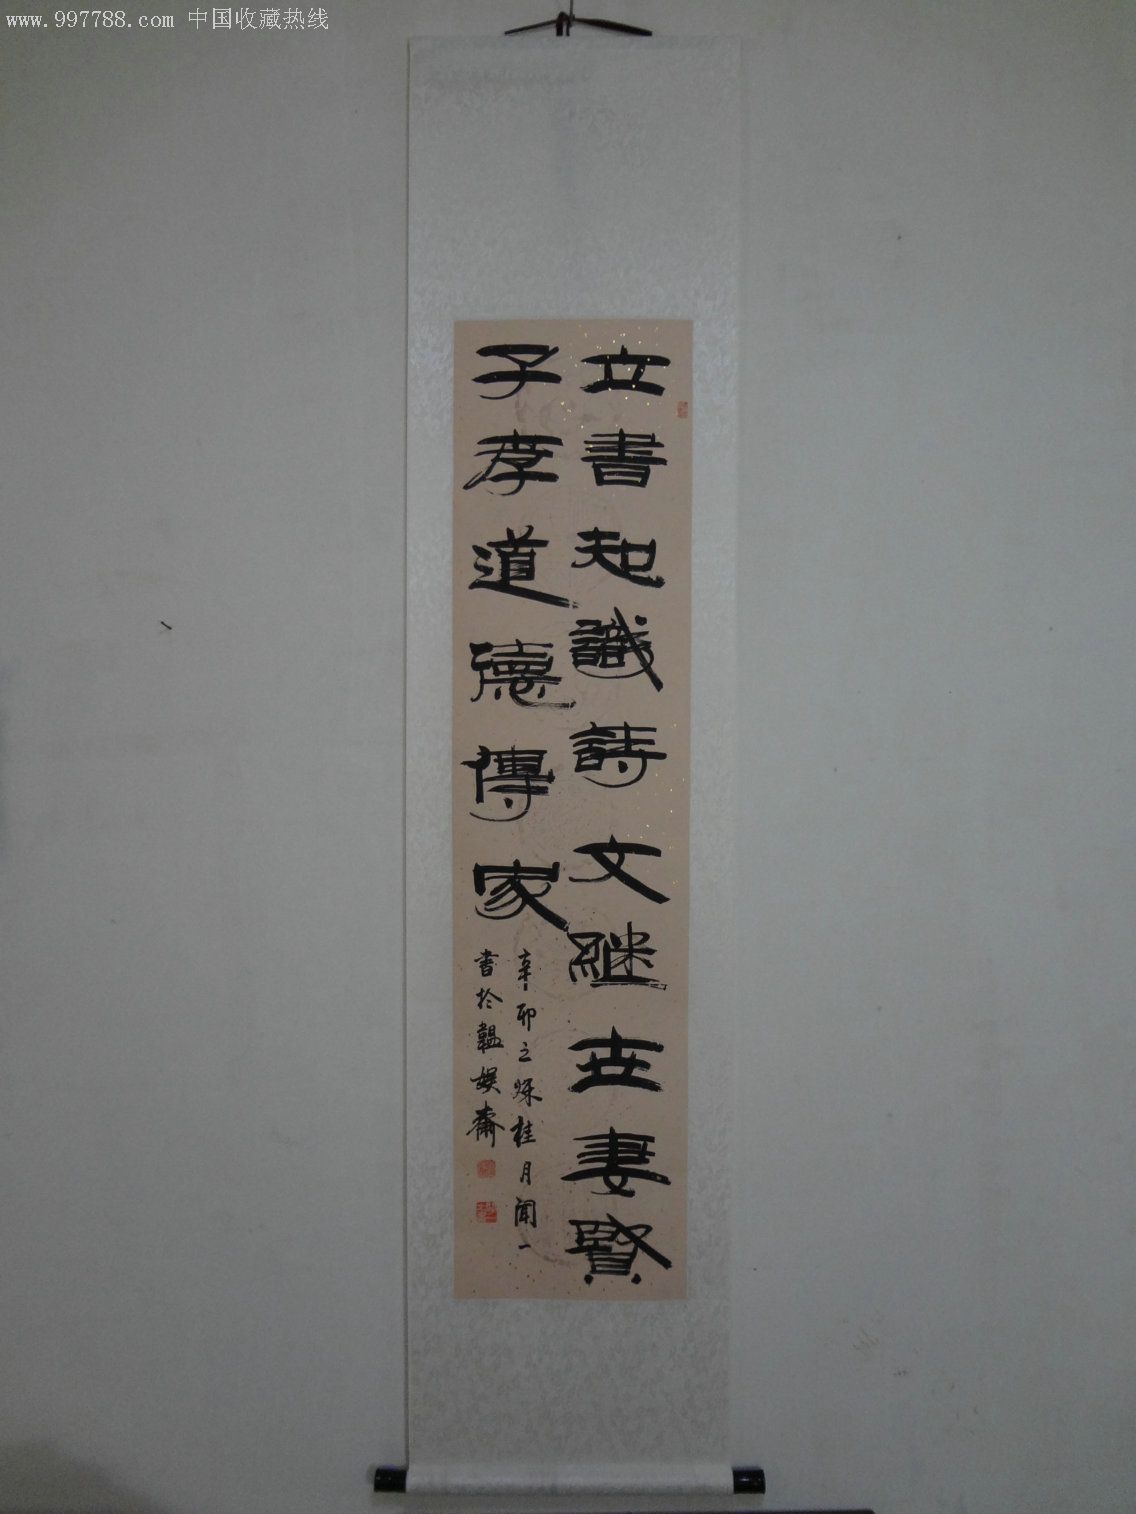 www.997788.com 中国收藏热线
立書知識詩文继世妻賢
子孝道德傳家
辛卯之烁桂月闻一
書於韞娱齋